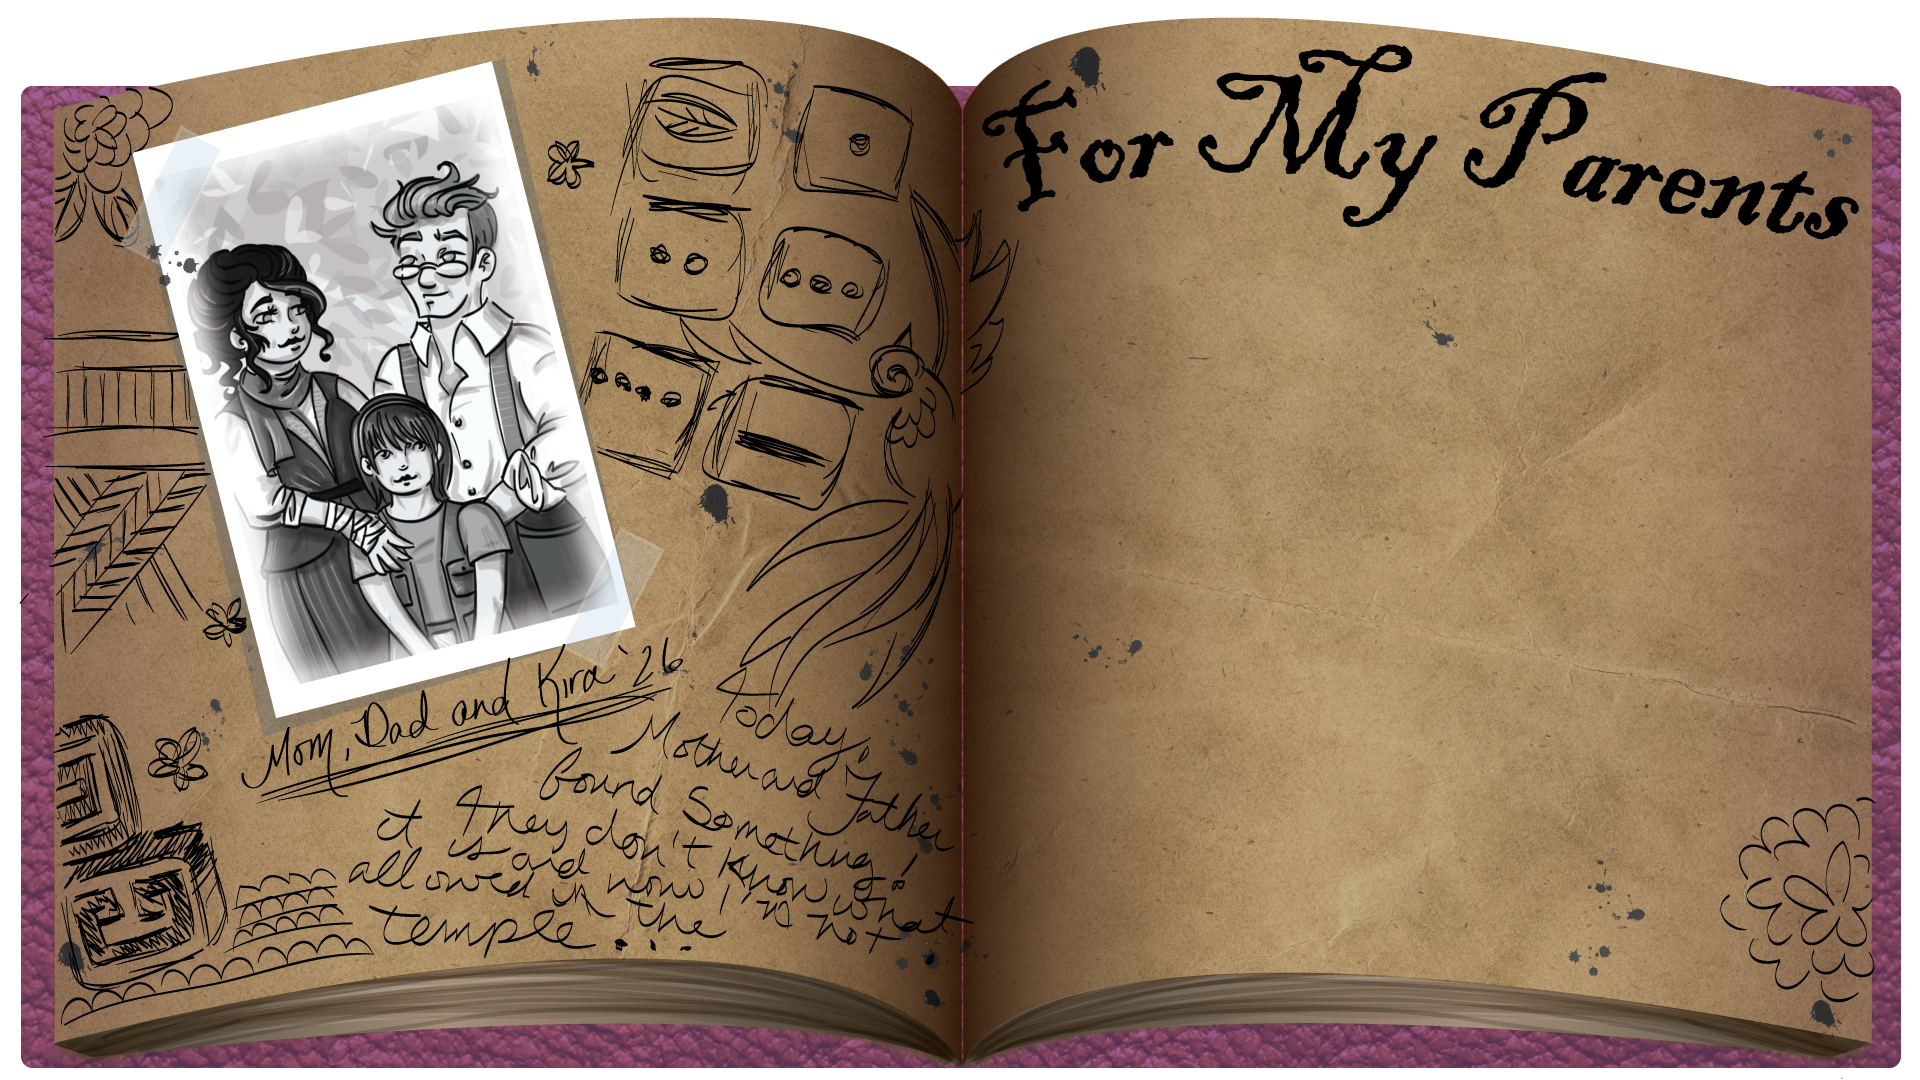 Mom, Dad and Kira '26
Today,
Mother and Father
found Something!
They don't know what
it is and now I'm not
allowed in the
temple...
For My Parents